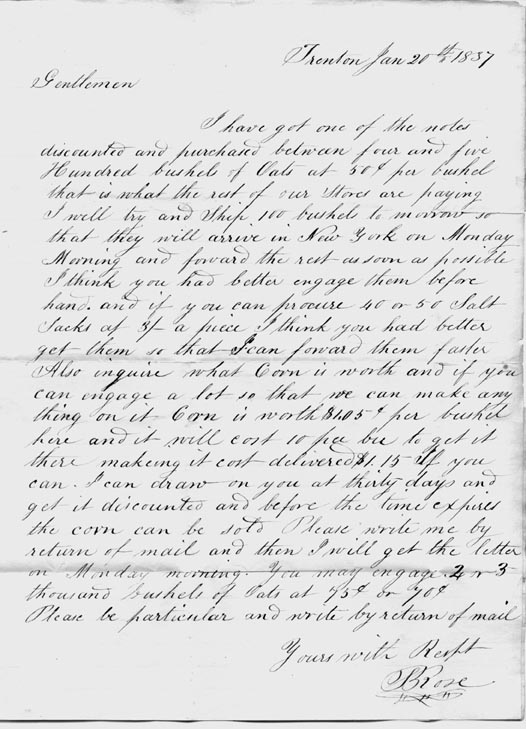 Trenton Jan 20th 1837
Gentlemen
I have got one of the notes
discounted and purchased between four and five
Hundred bushels of Oats at 50¢ per bushel
that is what the rest of our Stores are paying
I will try and Ship 100 bushels to morrow so
that they will arrive in New York on Monday
Morning and forward the rest as soon as possible
I think you had better engage them before
hand. and if you can procure 40 or 50 Salt
Sacks at 3/- a piece I think you had better
get them so that I can foward them faster
Also inquire what Corn is worth and if you
can engage a lot so that we can make any
thing on it Corn is worth $1.05¢ per bushel
here and it will cost 10 per bu to get it
there makeing it cost delivered $1.15 If you
can. I can draw on you at thirty days and
get it discounted and before the time expires
the corn can be sold Please write me by
return of mail and then I will get the letter
on Monday morning. You may engage 2 or 3
thousand bushels of Oats at 75¢ or 70¢
Please be particular and write by return of mail
Yours with Respt
B Rose